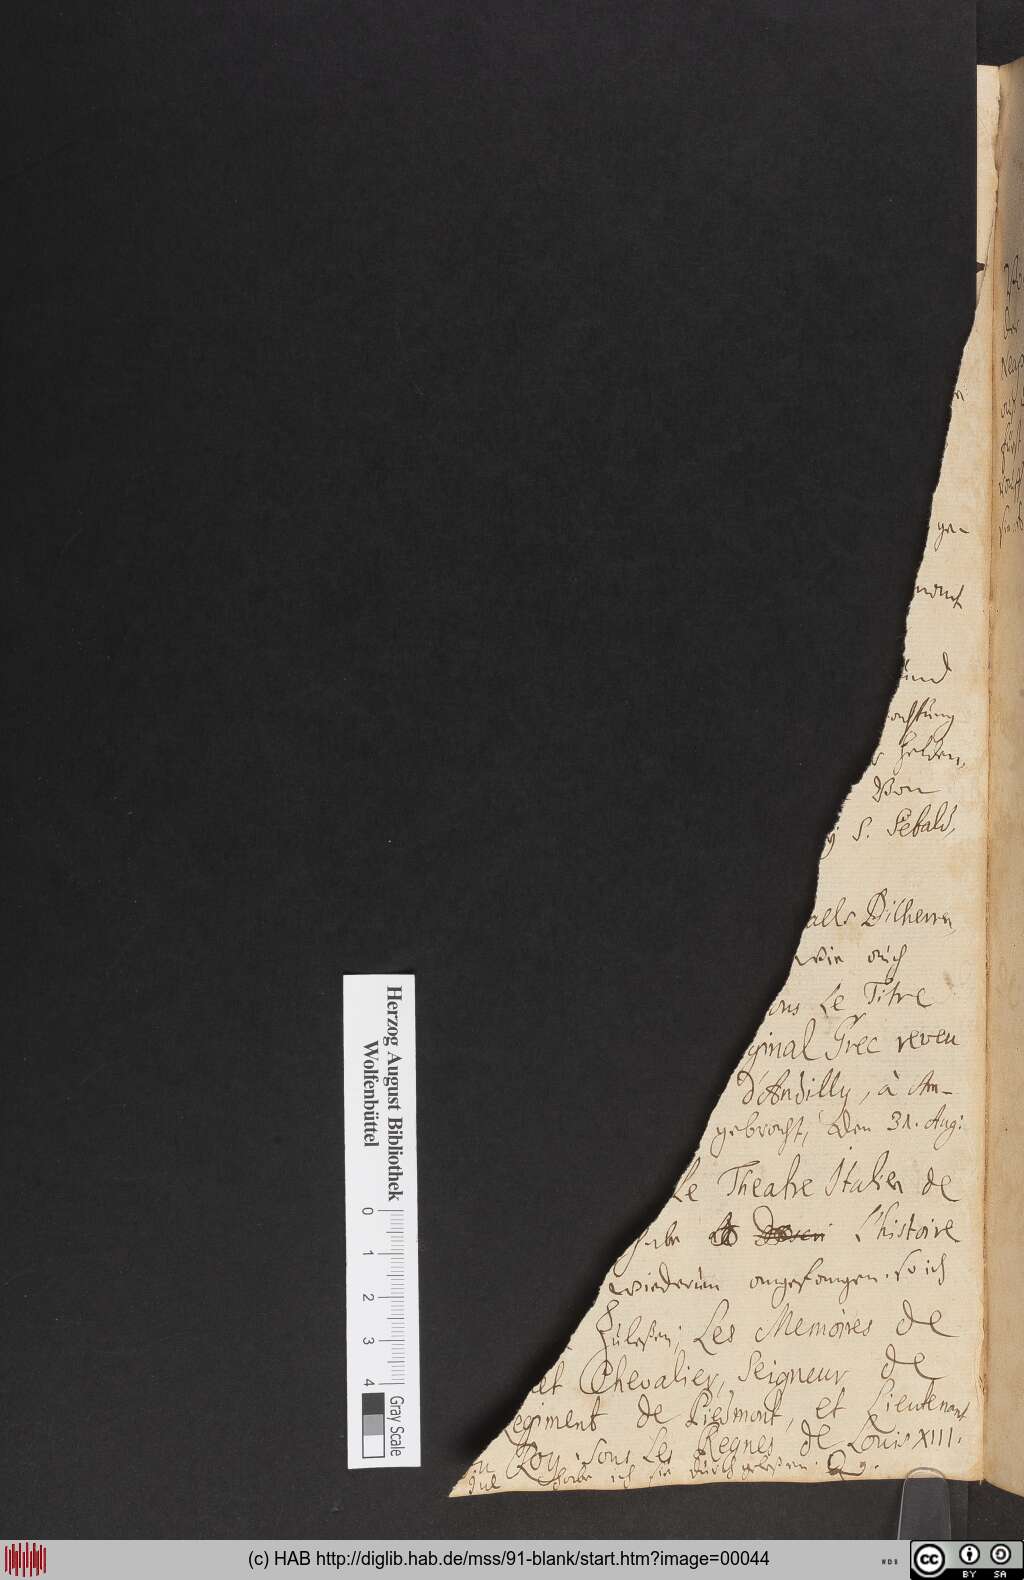 ge-
und
achtung
helden,
Von
S. Sebald,
aels Dilherrn,
wie auch
ous Le Titre
ginal Grec reveu
d'Andilly, à Am-
gebracht, den 31. Aug:
Le Theatre Italien de
habe L'histoire
wiederum angefangen. so ich
zulesen; Les Memoires de
et Chevalier, Seigneur de
egiment de Piedmont, et Lieutenant
u Roy. Sous Les Regnes de Louis XIII.
Jul habe ich sie durchgelesen.
Herzog August Bibliothek
Wolfenbüttel
0 1 2 3 4
Gray Scale
(c) HAB http://diglib.hab.de/mss/91-blank/start.htm?image=00044
WDB
cc BY SA